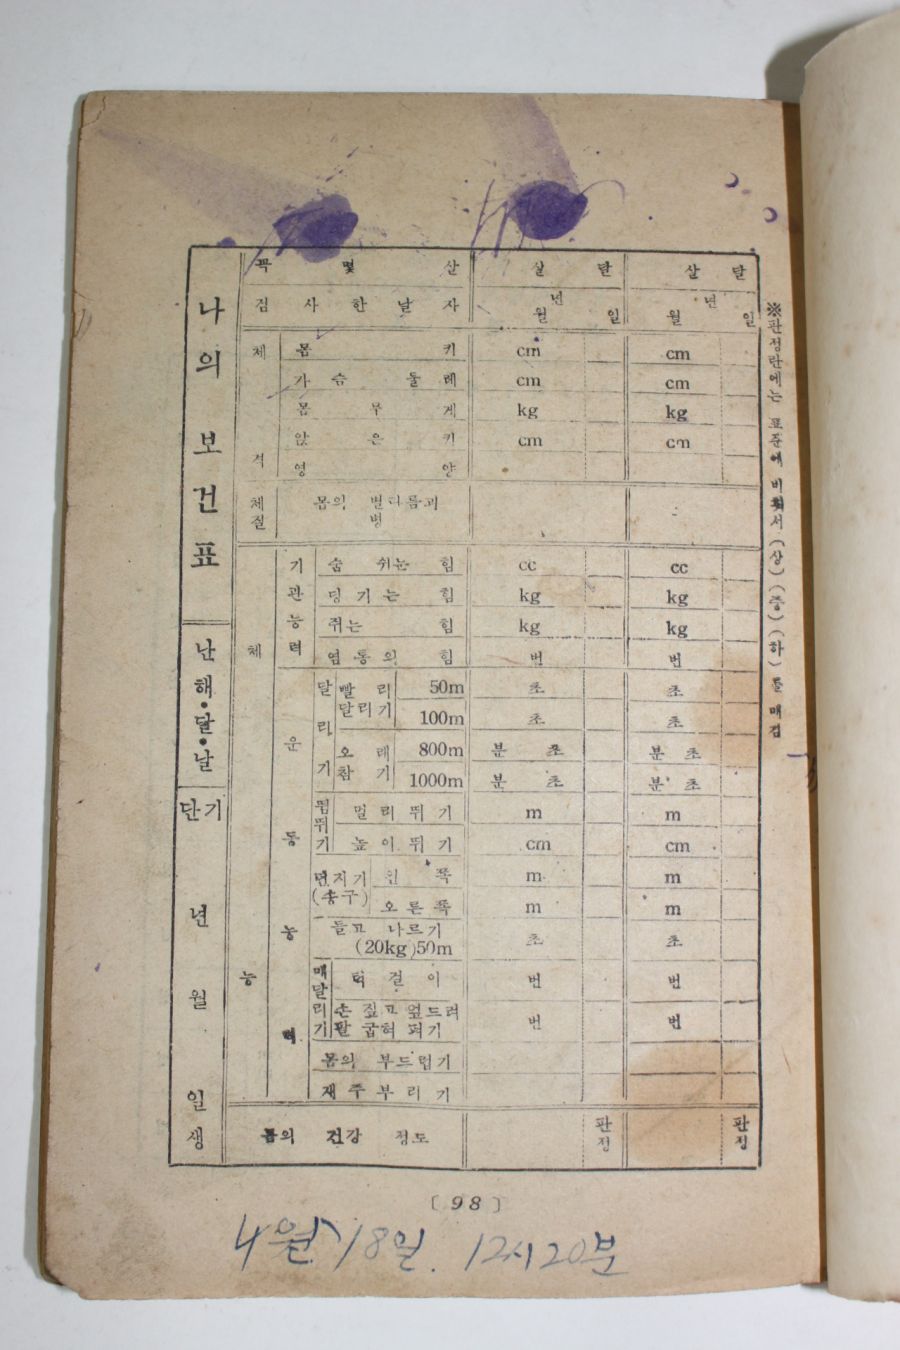 나의 보건표
난 해・달・날
단기 년 월 일생
꼭 몇 살 살 달 살 달
검사한 날자 년 월 일 년 월 일
체격
몸 키 cm cm
가슴 둘레 cm cm
몸 무게 kg kg
앉은 키 cm cm
영 양
체질 몸의 별다름과 병
체능
기관능력
숨 쉬는 힘 cc cc
딩기는 힘 kg kg
쥐는 힘 kg kg
염통의 힘 번 번
운동능력
달리기 빨리 달리기 50m 초 초
100m 초 초
오래 참기 800m 분 초 분 초
1000m 분 초 분 초
뜀뛰기 멀리뛰기 m m
높이뛰기 cm cm
던지기 (송구) 왼 쪽 m m
오른쪽 m m
들고 나르기 (20kg)50m 초 초
매달리기 턱걸이 번 번
손 짚고 엎드려 팔 굽혀 펴기 번 번
몸의 부드럽기
재주부리기
몸의 건강 정도 판정 판정
※판정란에는 표준에 비해서 (상)(중)(하)를 매김
〔98〕
4월 18일. 12시20분